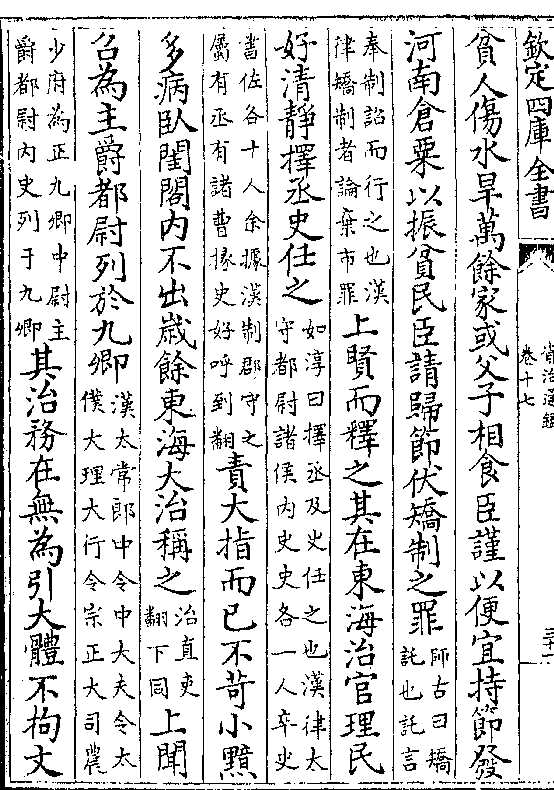 欽定四庫全書
資治通鑑
卷十七
貧人傷水旱萬餘家或父子相食臣謹以便宜持節發
河南倉粟以振貧民臣請歸節伏矯制之罪師古曰矯託也託言
奉制詔而行之也漢律矯制者論棄市罪上賢而釋之其在東海治官理民
好清靜擇丞史任之如淳曰擇丞及史任之也漢律太守都尉諸侯内史史各一人卒史
書佐各十人余據漢制郡守之屬有丞有諸曹掾史好呼到翻責大指而已不苛小黯
多病臥閨閤内不出歳餘東海大治稱之治直吏翻下同上聞
召為主爵都尉列於九卿漢太常郎中令中大夫令太僕大理大行令宗正大司農
少府為正九卿中尉主爵都尉内史列于九卿其治務在無為引大體不拘文